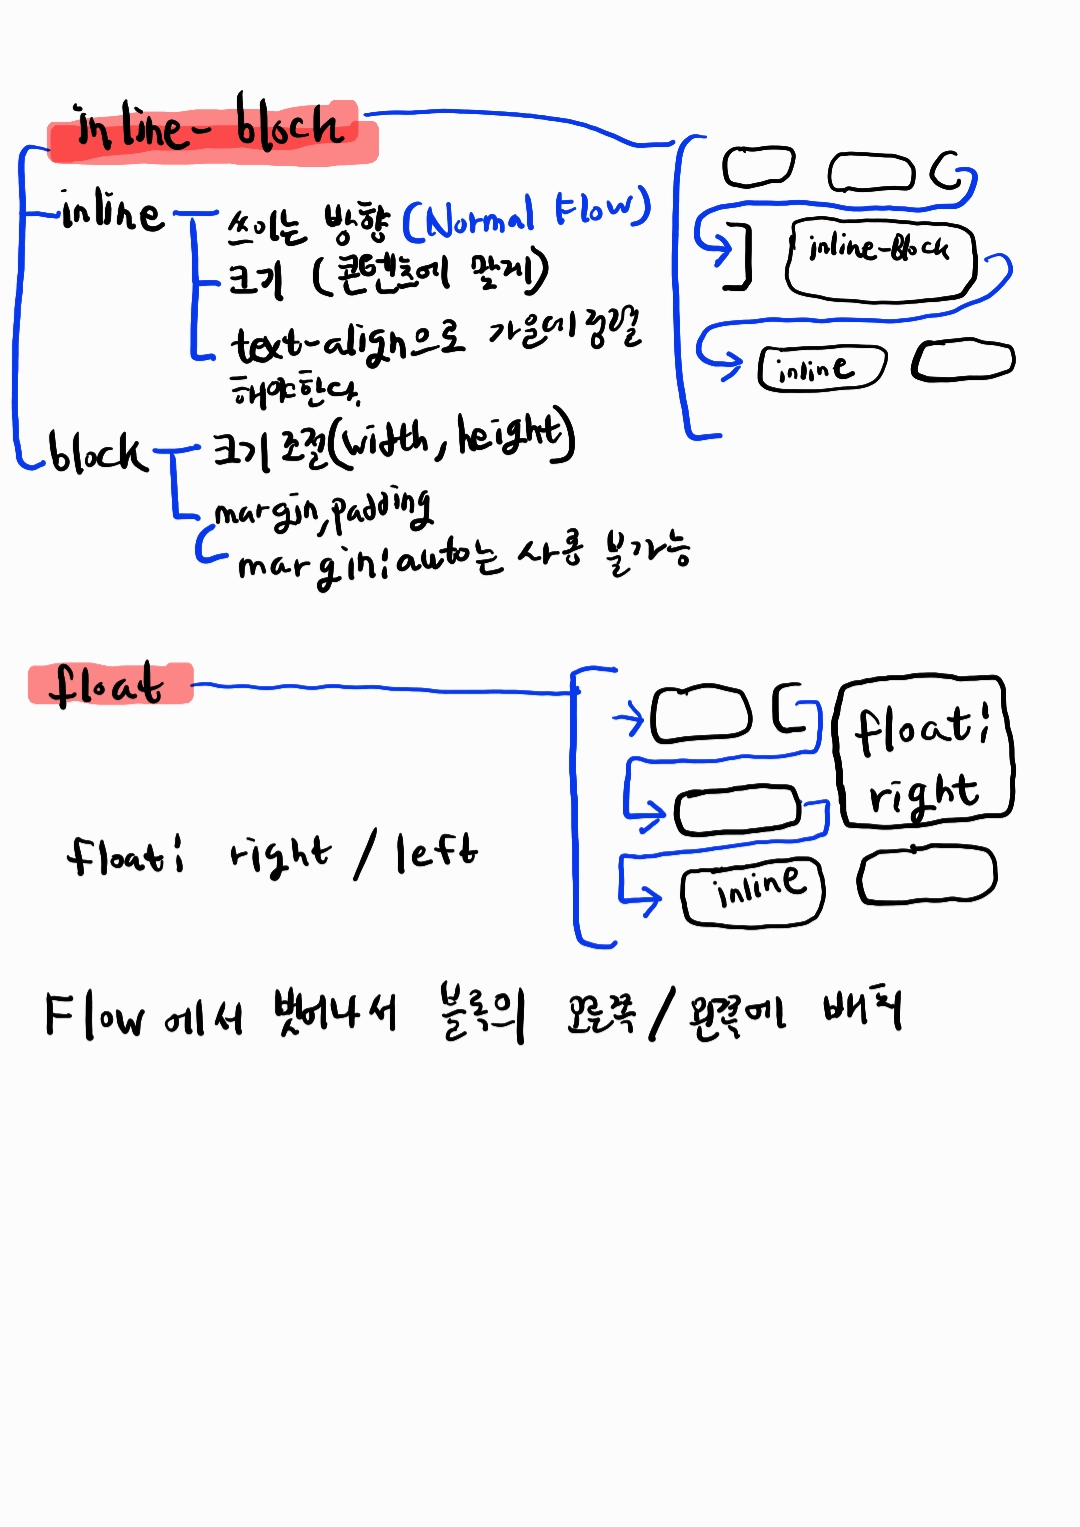 inline-block
inline
쓰이는 방향 (Normal Flow)
크기 (콘텐츠에 맞게)
text-align으로 가운데 정렬
해야한다.
block
크기 조절(width, height)
margin, padding
margin:auto는 사용 불가능
inline-Block
inline
float
float: right / left
float:
right
inline
Flow에서 벗어나서 블록의 오른쪽/왼쪽에 배치